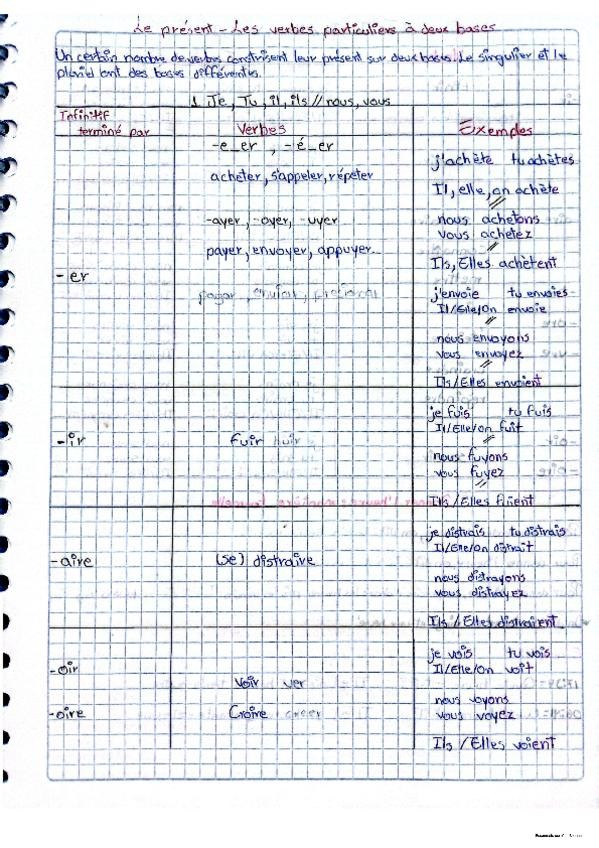 Le présent - Les verbes particuliers à deux bases
Un certain nombre de verbes construisent leur présent sur deux bases. Le singulier et le
pluriel ont des bases différentes.
1. Je, Tu, il, ils // nous, vous
Infinitif
terminé par
Verbes
Exemples
-er
-e_er , -é_er
acheter, s'appeler, répéter
-ayer, -oyer, -uyer
payer, envoyer, appuyer
pagar, enviar,
j'achète tu achètes
Il, elle, on achète
nous achetons
vous achetez
Ils, Elles achètent
j'envoie tu envoies
Il/Elle/On envoie
nous envoyons
vous envoyez
Ils/Elles envoient
-ir
fuir huir
je fuis tu fuis
Il/Elle/On fuit
nous fuyons
vous fuyez
Ils/Elles fuient
-aire
(se) distraire
je distrais tu distrais
Il/Elle/On distrait
nous distrayons
vous distrayez
Ils/Elles distraient
-oir
Voir ver
-oire
Croire creer
je vois tu vois
Il/Elle/On voit
nous voyons
vous voyez
Ils/Elles voient